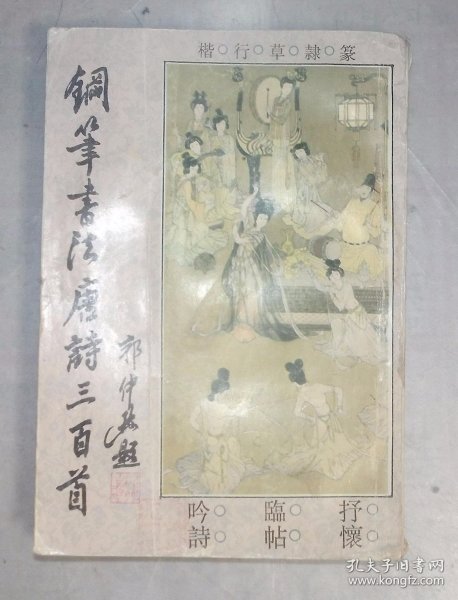 楷○行○草○隸○篆
鋼筆書法唐詩三百首
郭仲选題
吟詩
臨帖
抒懷
孔夫子旧书网
www.kongfz.com